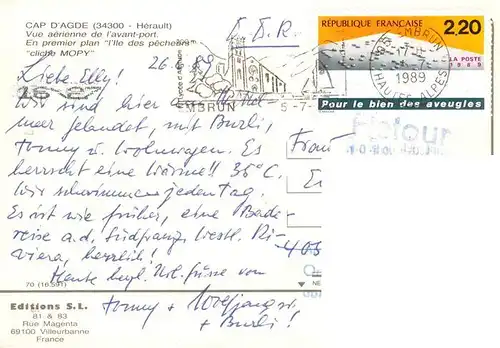 CAP D'AGDE (34300 - Hérault)
Vue aérienne de l'avant-port.
En premier plan "l'Ile des pêcheurs"
"cliché MOPY"
D.D.R.
RÉPUBLIQUE FRANÇAISE
2,20
LA POSTE
1989
Pour le bien des aveugles
EMBRUN
1989
HAUTES ALPES
EMBRUN
5-7-
Retour
Liebe Elly! 26.6.89
Wir sind hier am Mittel
meer gelandet, mit Burli,
Tommy u. Wohnwagen. Es
herrscht eine Wärme!! 36°C.
Wir schwimmen jeden Tag.
Es ist wie früher, eine Bade-
reise a.d. Südfranz. Westl. Ri-
viera, herrlich!
Heute herzl. Url. Grüsse von
Tommy +
+ Burli!
Frau
70 (16.591)
Editions S.L.
81 & 83
Rue Magenta
69100 Villeurbanne
France